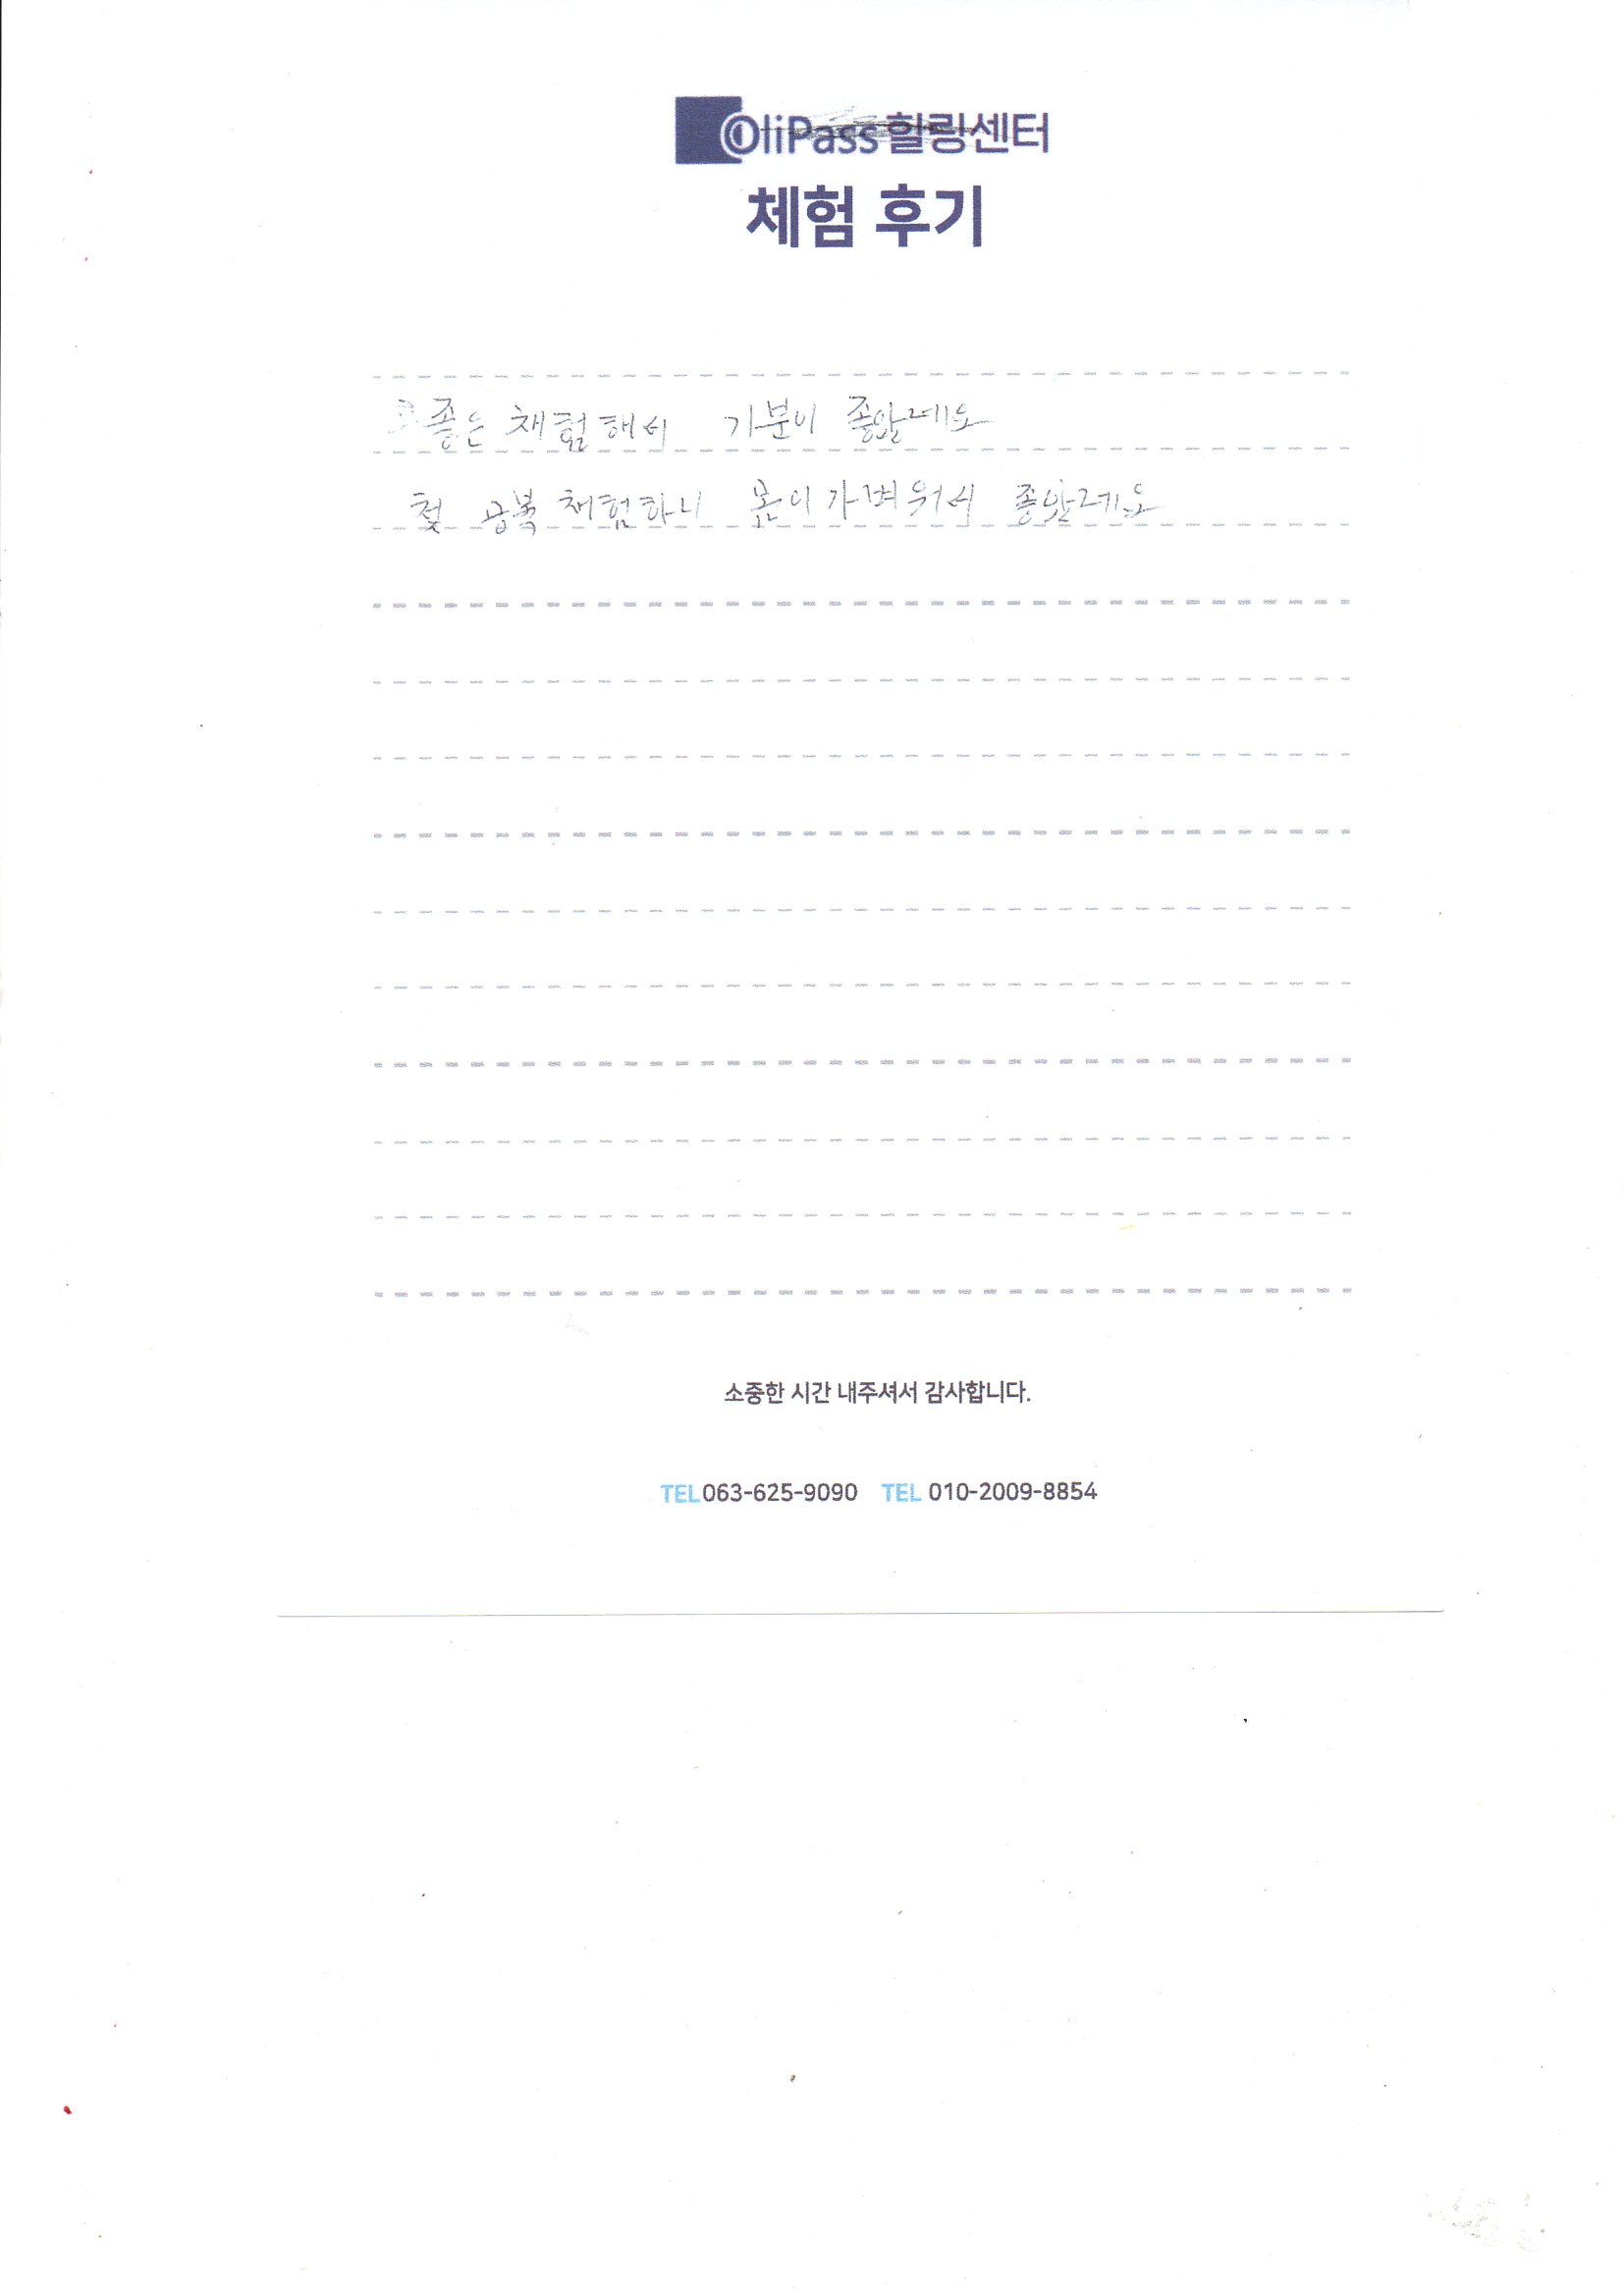 OliPass힐링센터
체험 후기
좋은 체험해서 기분이 좋았네요
첫 공복 체험하니 몸이 가벼워서 좋았네요
소중한 시간 내주셔서 감사합니다.
TEL 063-625-9090 TEL 010-2009-8854